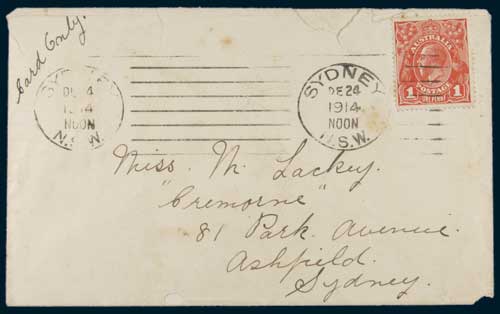 Card Only.
SYDNEY
DE 24
1914
NOON
N.S.W.
SYDNEY
DE 24
1914
NOON
N.S.W.
AUSTRALIA
POSTAGE
1 ONE PENNY 1
Miss. M. Lackey.
"Cremorne"
81 Park Avenue.
Ashfield.
Sydney.